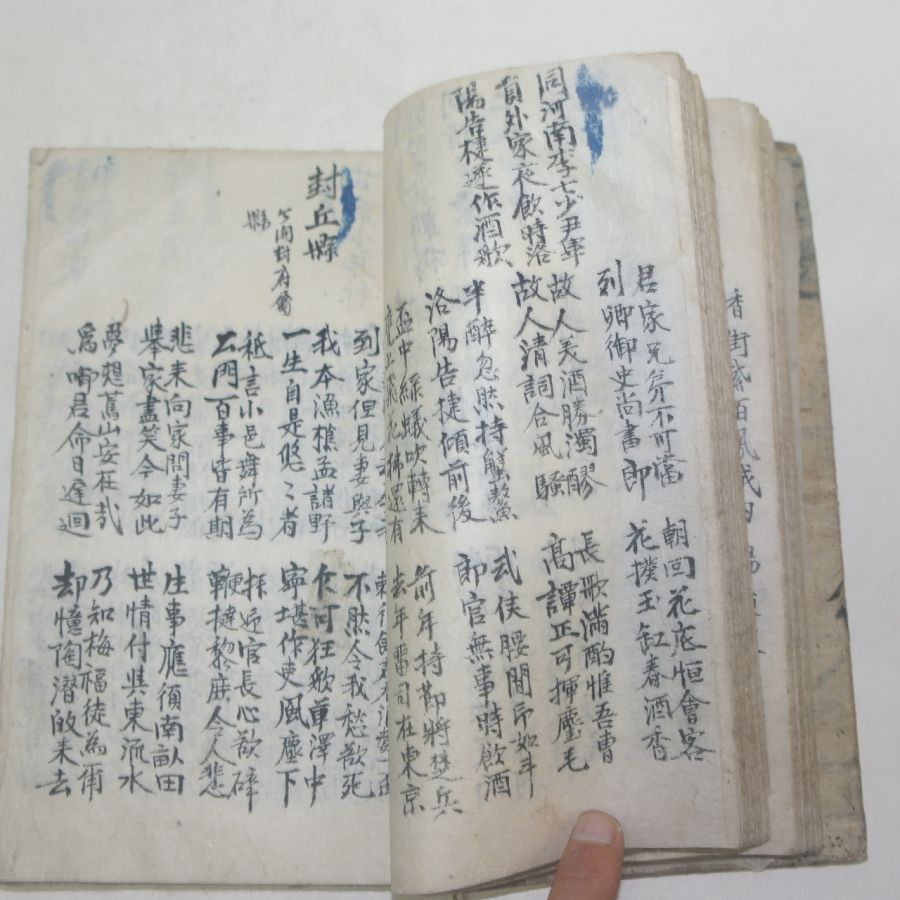 香街
鳳城內
同河南李七少尹畢
員外家夜飲時洛
陽告捷遂作酒歌
君家兄弟不可當
列卿御史尚書郎
朝回花底恒會客
花撲玉缸春酒香
故人美酒勝濁醪
故人清詞合風騷
長歌滿酌惟吾曹
高譚正可揮麈毛
半醉忽然持蟹螯
洛陽告捷傾前後
武侯腰間印如斗
郎官無事時飲酒
盃中綠蟻吹轉来
飛花拂還有
前年持節將楚兵
去年留司在東京
到家但見妻與子
不然令我愁欲死
封丘縣
開封府屬
縣
我本漁樵孟諸野
一生自是悠々者
乍可狂歌草澤中
寧堪作吏風塵下
秖言小邑無所為
公門百事皆有期
拜迎官長心欲碎
鞭撻黎庶令人悲
悲来向家問妻子
舉家盡笑今如此
生事應須南畝田
世情付與東流水
夢想舊山安在哉
為啣君命日遲迴
乃知梅福徒為爾
却憶陶潛敀来去